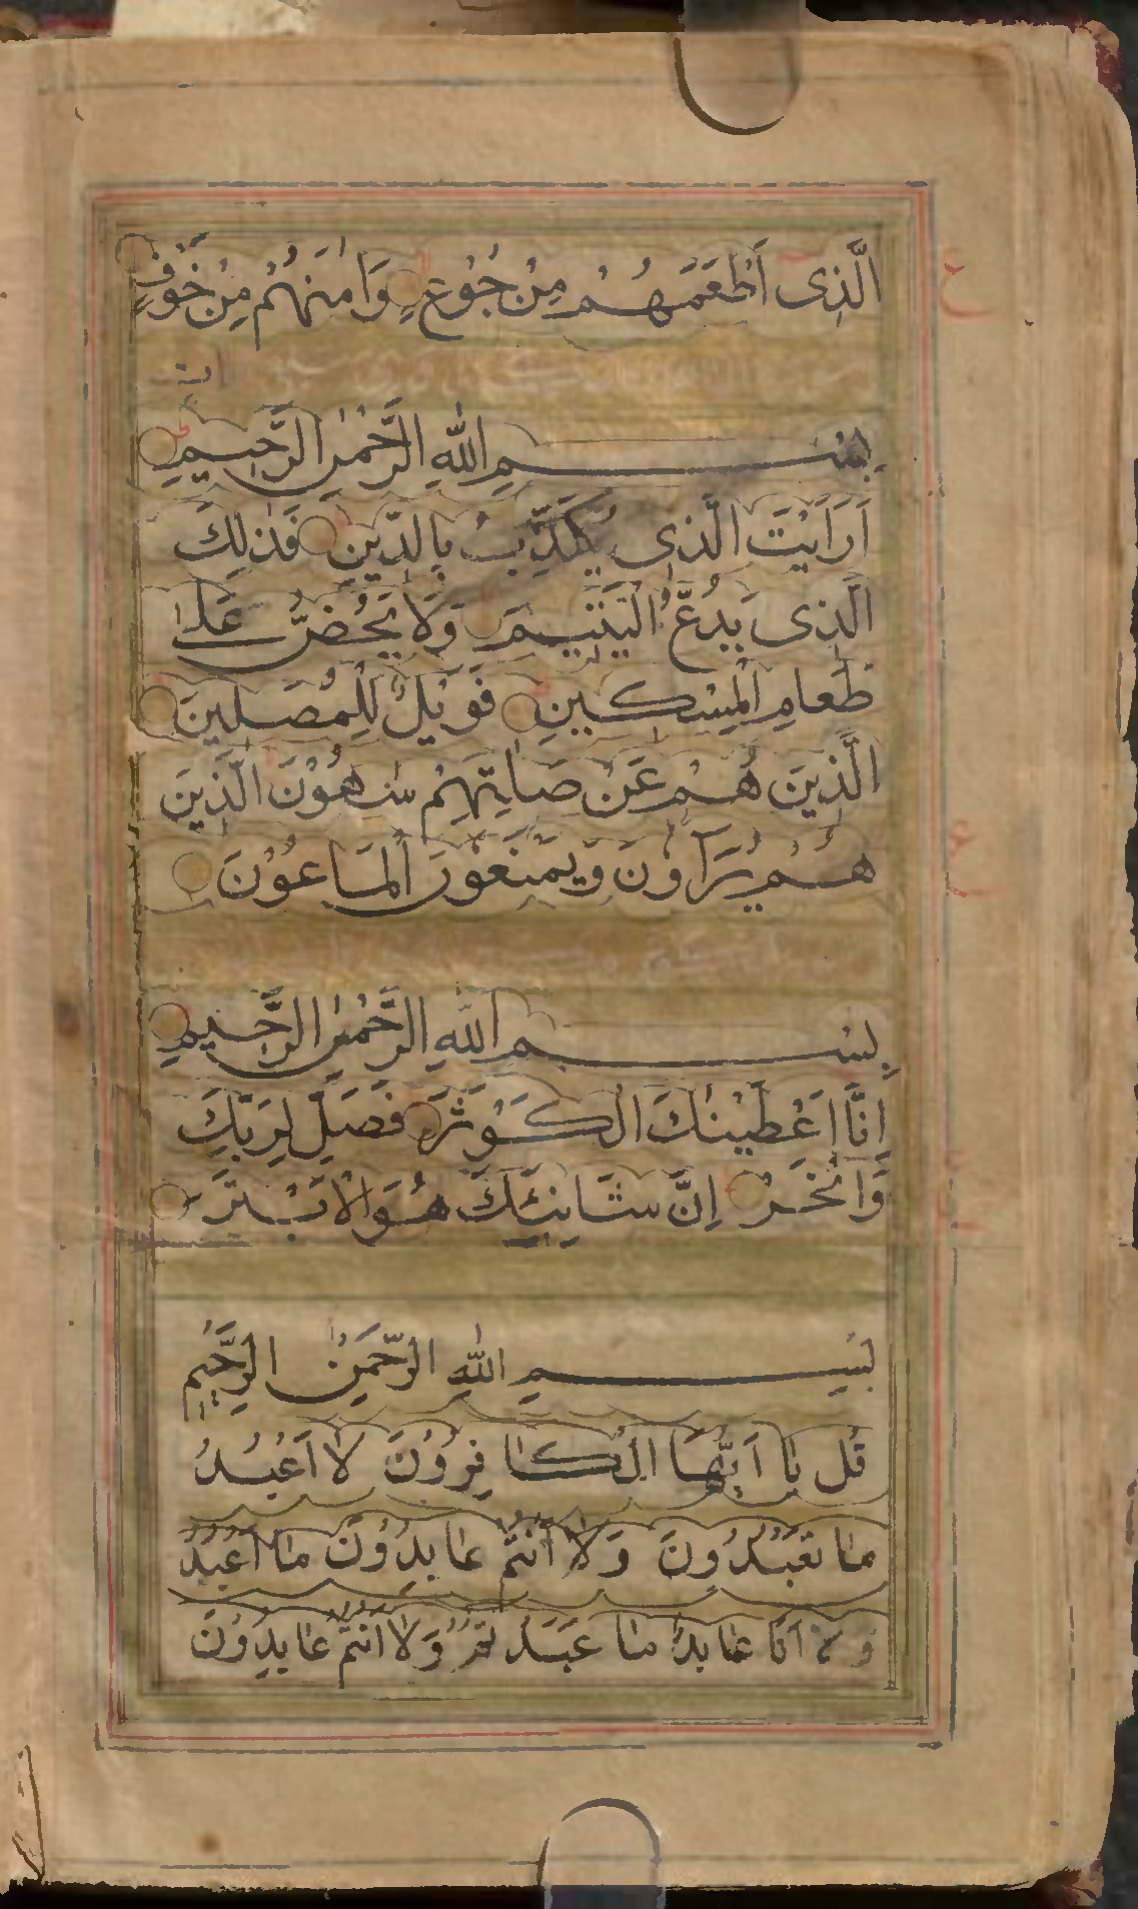 الَّذِى اَطْعَمَهُمْ مِنْ جُوْعٍ وَاٰمَنَهُمْ مِنْ خَوْفٍ
بِسْمِ اللّٰهِ الرَّحْمٰنِ الرَّحِيمِ
اَرَاَيْتَ الَّذِى يُكَذِّبُ بِالدِّينِ فَذٰلِكَ
الَّذِى يَدُعُّ الْيَتِيمَ وَلَا يَحُضُّ عَلٰى
طَعَامِ الْمِسْكِينِ فَوَيْلٌ لِلْمُصَلِينَ
الَّذِينَ هُمْ عَنْ صَلٰتِهِمْ سٰهُوْنَ الَّذِينَ
هُمْ يُرَآؤُنَ وَيَمْنَعُوْنَ الْمَاعُوْنَ
بِسْمِ اللّٰهِ الرَّحْمٰنِ الرَّحِيمِ
اِنَّا اَعْطَيْنٰكَ الْكَوْثَرَ فَصَلِّ لِرَبِّكَ
وَانْحَرْ اِنَّ شَانِئَكَ هُوَ الْاَبْتَرُ
بِسْمِ اللّٰهِ الرَّحْمَنِ الرَّحِيمِ
قُل يَا اَيُّهَا الْكَافِرُوْنَ لَا اَعْبُدُ
مَا تَعْبُدُونَ وَلَا اَنْتُمْ عَابِدُوْنَ مَا اَعْبُدُ
وَلَا اَنَا عَابِدٌ مَا عَبَدْتُمْ وَلَا اَنْتُمْ عَابِدُوْنَ